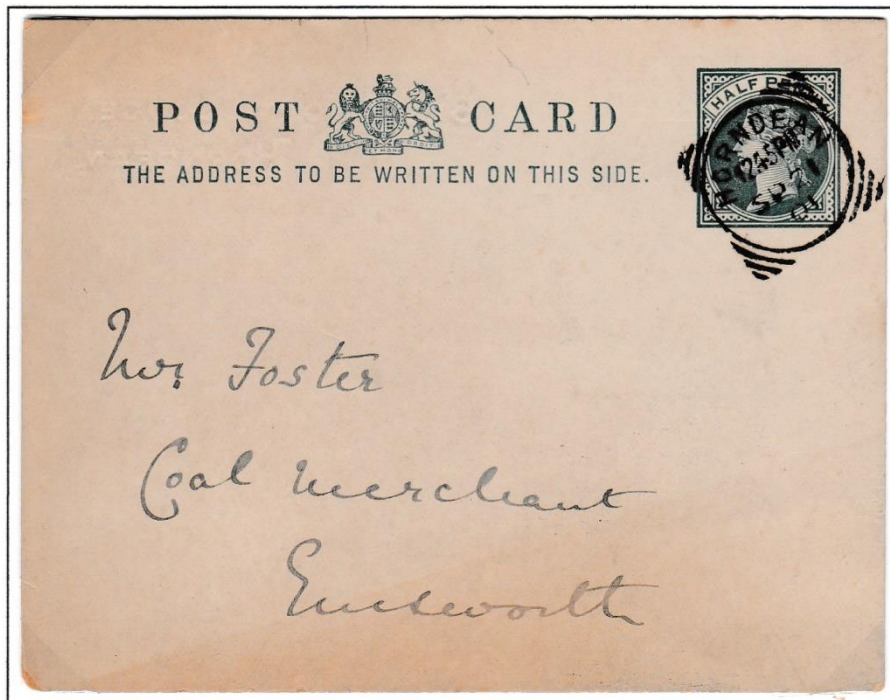 POST CARD
THE ADDRESS TO BE WRITTEN ON THIS SIDE.
HALF PENNY
HORNDEAN
1245PM
SP 21
01
Mr. Foster
Coal Merchant
Emsworth